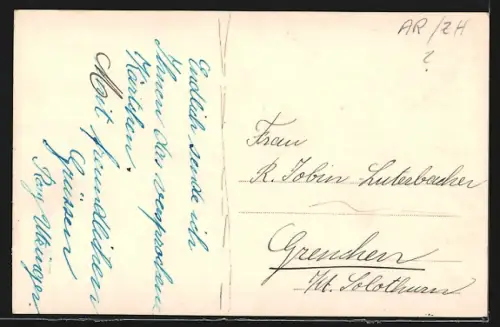 Endlich sende ich
Ihnen das versprochene
Kärtchen.
Mit freundlichen
Grüssen
AR/ZH
?
Frau
R. Tobin Luterbacher
Grenchen
Kt. Solothurn